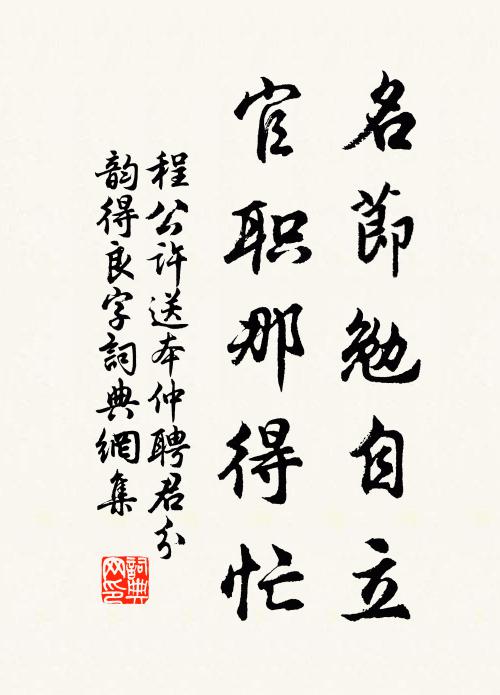 名節勉自立
官职那得忙
程公許送本仲聘君分
韵得良字詞典網集
詞典网印